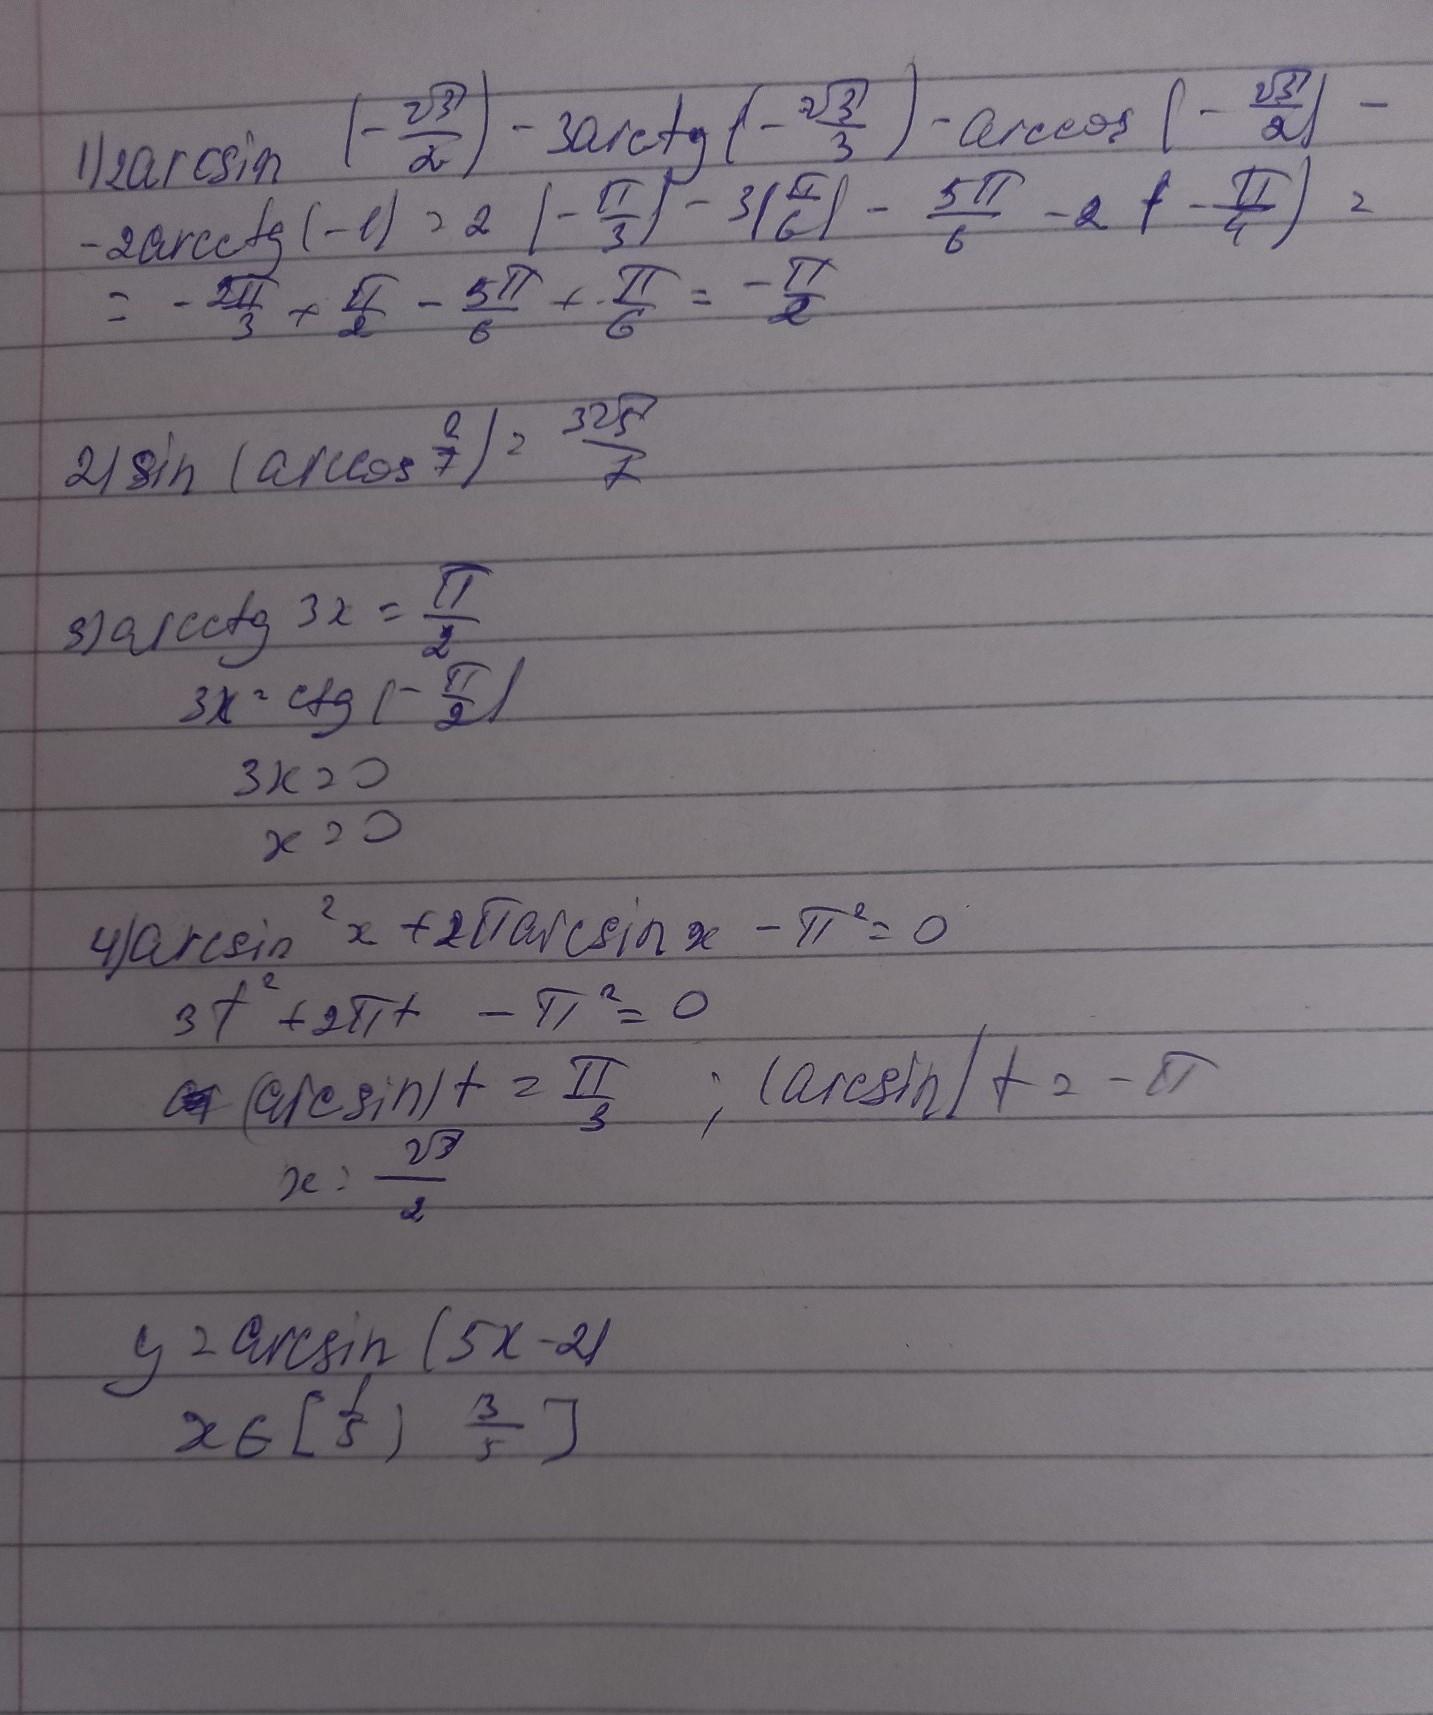 1) 2arcsin (-√3/2) - 3arctg (-√3/3) - arccos (-√3/2) -
- 2arcctg (-1) = 2 (-π/3) - 3(π/6) - 5π/6 - 2 (-π/4) =
= - 2π/3 + π/2 - 5π/6 + π/6 = -π/2
2) sin (arccos 2/7) = 3√5/7
3) arcctg 3x = π/2
3x = ctg (-π/2)
3x = 0
x = 0
4) arcsin²x + 2π arcsin x - π² = 0
3t² + 2πt - π² = 0
(arcsin) t = π/3 ; (arcsin) t = -π
x = √3/2
y = arcsin (5x-2)
x ∈ [1/5 ; 3/5]